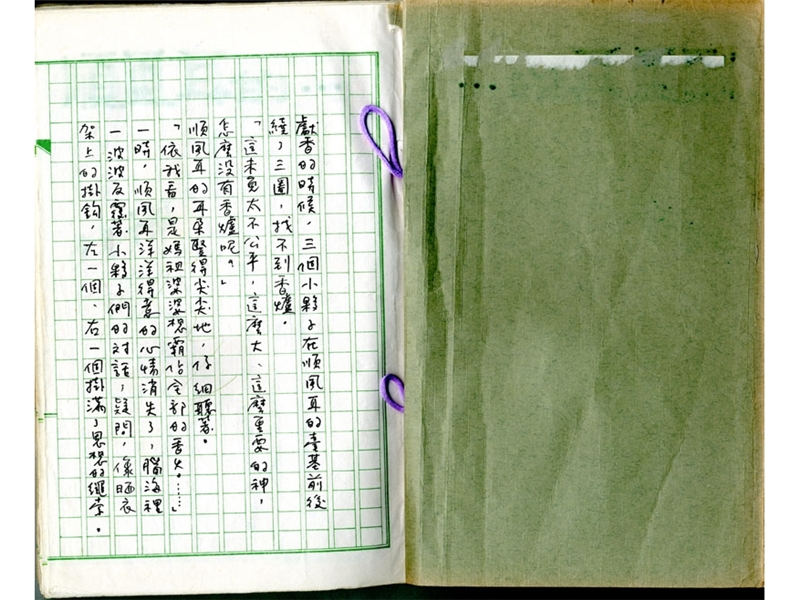 獻香的時候，三個小夥子在順風耳的臺基前後
繞了三圈，找不到香爐。
「這未免太不公平，這麼大、這麼重要的神，
怎麼沒有香爐呢？」
順風耳的耳朵豎得尖尖地，仔細聽著。
「依我看，是媽祖婆婆想霸佔全部的香火……」
一時，順風耳洋洋得意的心情消失了，腦海裡
一波波反覆著小夥子們的對話，疑問，像晒衣
架上的掛鉤，左一個、右一個掛滿了思想的繩索。